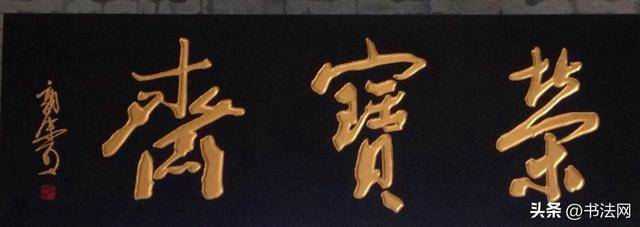 榮寶齋
郭沫若
头条 @书法网